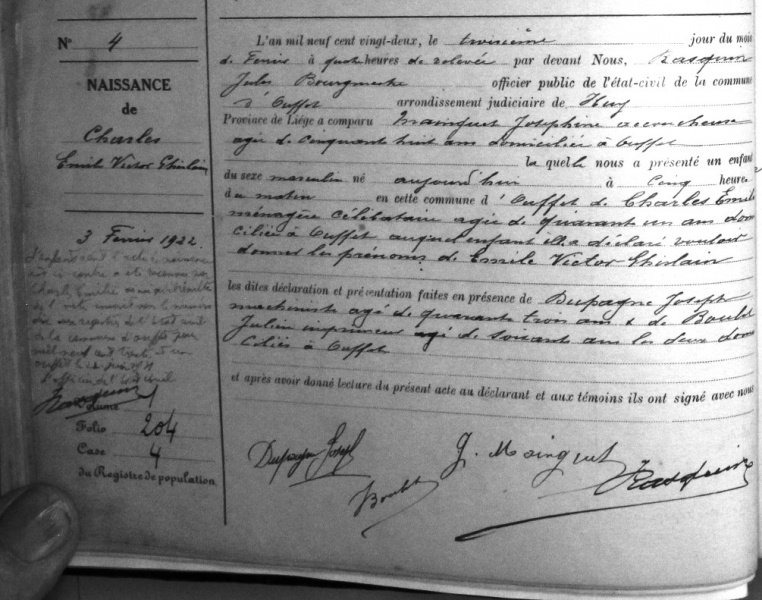 N° 4
NAISSANCE
de
Charles
Emil Victor Ghislain
3 Fevrier 1922
L'enfant
Charles Emilie
Rasquin
Folio 204
Case 4
du Registre de population
L'an mil neuf cent vingt-deux, le troisième jour du mois
de Fevrier à quatre heures de relevée par devant Nous, Rasquin
Jules Bourgmestre officier public de l'état-civil de la commune
d'Ouffet arrondissement judiciaire de Huy
Province de Liége a comparu Mainguet Joséphine accoucheuse
agée de cinquante huit ans domiciliée à Ouffet
laquelle nous a présenté un enfant
du sexe masculin né aujourd'hui à Cinq heures
du matin en cette commune d'Ouffet de Charles Emile
ménagère célibataire agée de quarante un ans domi
ciliée à Ouffet auquel enfant elle a déclaré vouloir
donner les prénoms de Emile Victor Ghislain
les dites déclaration et présentation faites en présence de Dupagne Joseph
machiniste agé de quarante trois ans & de Boulet
Julien imprimeur agé de soixante ans les deux domi
ciliés à Ouffet
et après avoir donné lecture du présent acte au déclarant et aux témoins ils ont signé avec nous
Dupagne Joseph
J. Mainguet
Boulet
Rasquin